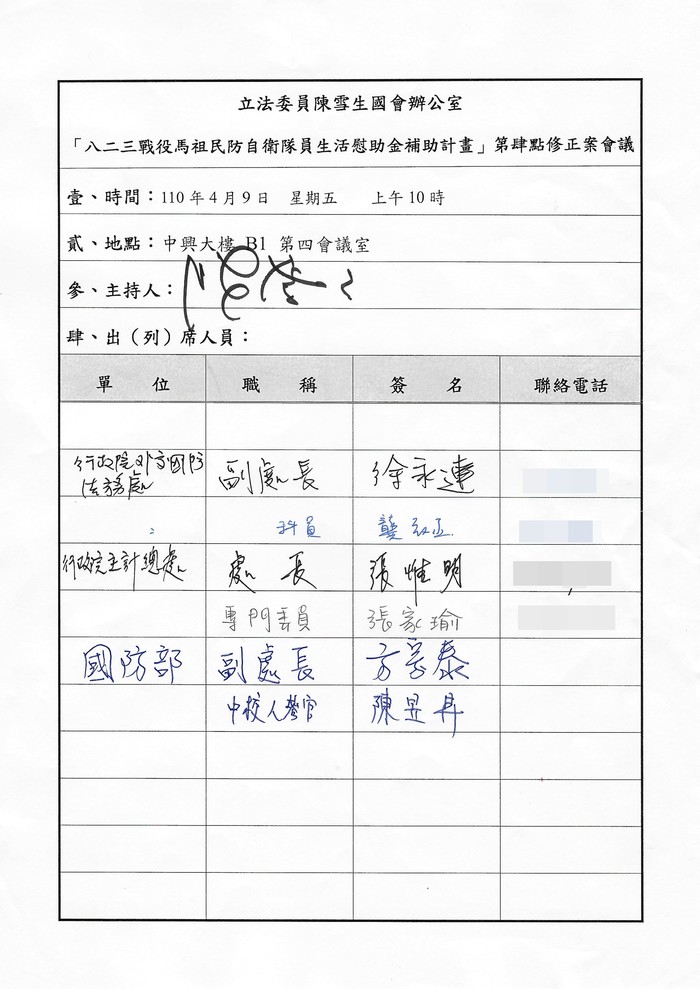 立法委員陳雪生國會辦公室
「八二三戰役馬祖民防自衛隊員生活慰助金補助計畫」第肆點修正案會議
壹、時間：110年4月9日 星期五 上午10時
貳、地點：中興大樓 B1 第四會議室
參、主持人：
肆、出（列）席人員：
單位 職稱 簽名 聯絡電話
行政院外交國防 副處長 徐永連
法務處
科員 龔
行政院主計總處 處長 張惟明
專門委員 張家瑜
國防部 副處長 方 泰
中校人 官 陳昱